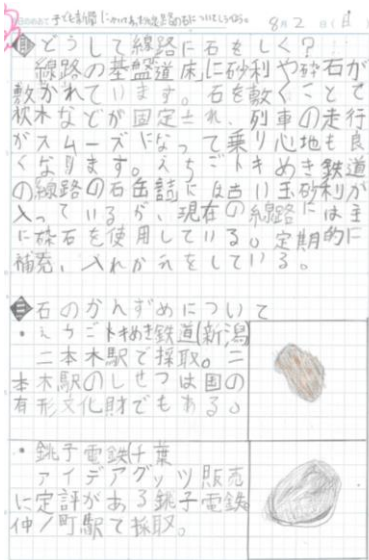 8月2日(日)
日どうして線路に石をしく?
線路の基盤道床に砂利や砕石が
敷かれています。石を敷くことで
枕木などが固定され、列車の走行
がスムーズになって乗り心地も良
くなります。えちごトキめき鉄道
の線路の石缶詰には古い玉砂利が
入っているが、現在の線路には主
に砕石を使用している。定期的に
補充、入れかえをしている。
三石のかんずめについて
・えちごトキめき鉄道(新潟
二本木駅で採取。二
本木駅のしせつは国の
有形文化財でもある。
・銚子電鉄(千葉
アイデアグッツ販売
に定評がある銚子電鉄
仲ノ町駅で採取。